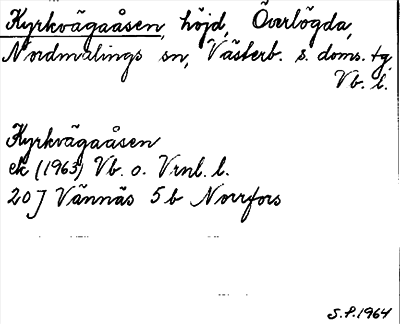 Kyrkvägaåsen, höjd, Överlögda,
Nordmalings sn, Västerb. s. doms. tg
Vb. l.
Kyrkvägaåsen
ek (1963) Vb. o. Vrnl. l.
20 J Vännäs 5 b Norrfors
S.P. 1964